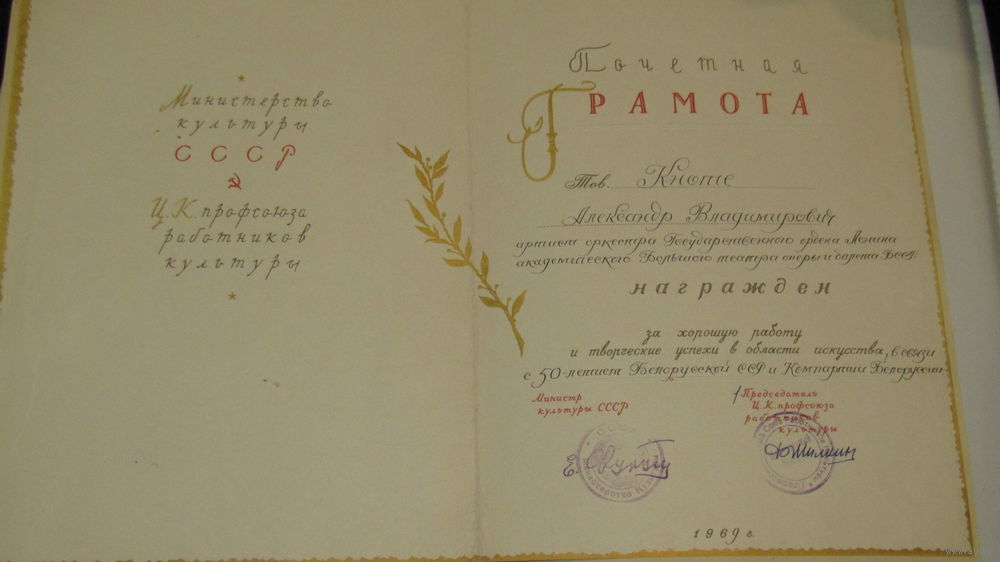 Министерство
культуры
СССР
Ц.К. профсоюза
работников
культуры
Почетная
ГРАМОТА
Тов. Кнопе
Александр Владимирович
артист оркестра Государственного ордена Ленина
академического Большого театра оперы и балета БССР
награжден
за хорошую работу
и творческие успехи в области искусства, в связи
с 50-летием Белорусской ССР и Компартии Белоруссии
Министр
культуры СССР
Председатель
Ц.К. профсоюза
работников
культуры
СССР
Министерство
1969 г.